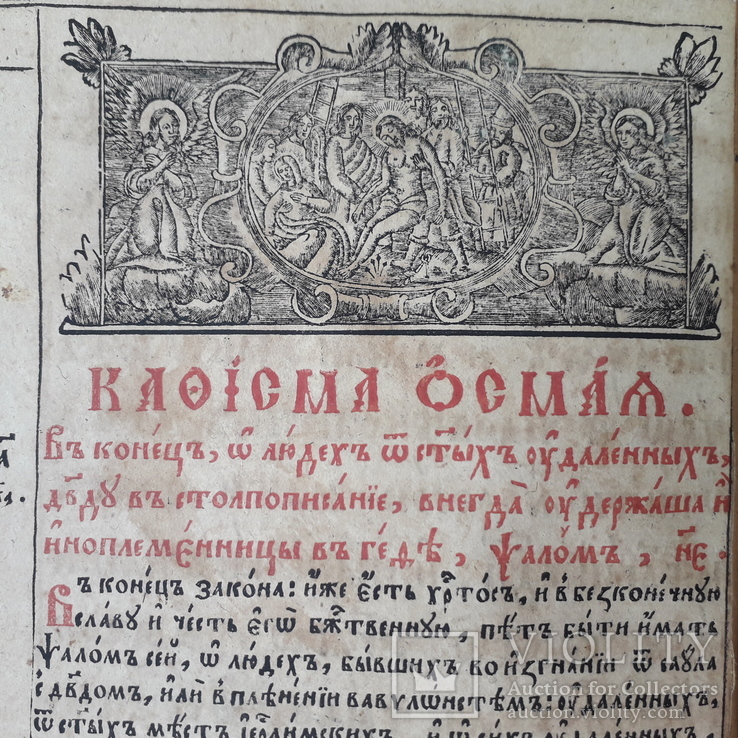 КАѲІСМА Ѻ҆СМА́Ѧ.
Въ коне́цъ, ѡ҆ лю́дехъ ѿ ст҃ы́хъ ᲂу҆дале́нныхъ,
дв҃ду въ столпописа́нїе, внегда̀ ᲂу҆держа́ша и҆̀
и҆ноплеме́нницы въ ге́ѳѣ, ѱало́мъ, н҃е.
Въ коне́цъ зако́на: и҆́же є҆́сть хрⷭ҇то́съ, и҆ в безконе́чную
сла́ву и҆ че́сть є҆гѡ̀ бжⷭ҇твенную, пѣ́тъ бы́ти и҆́мать
ѱало́мъ се́й, ѡ҆ лю́дехъ, бы́вшихъ во и҆згна́нїи ѿ саꙋ́ла
с дв҃домъ, и҆лѝ в плѣне́нїи вавѷлѡ́нстѣмъ: ᲂу҆дале́нныхъ,
ѿ ст҃ы́хъ мѣ́стъ і҆ерⷭ҇ли́мскихъ
VIOLITY
Auction for Collectors
auction.violity.com